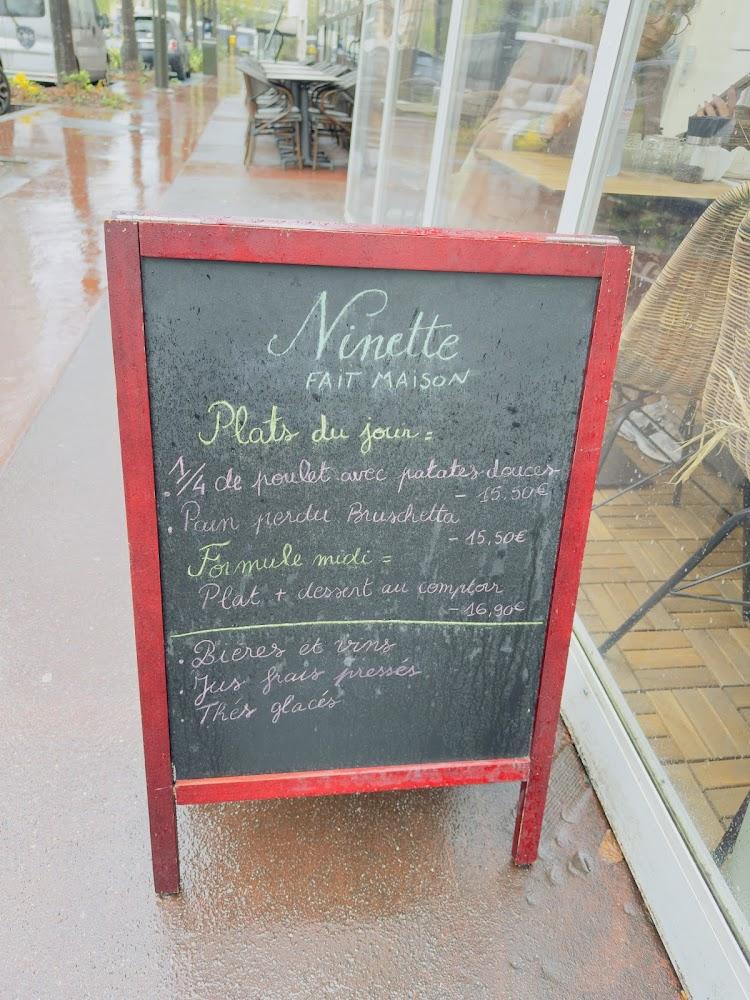 Ninette
FAIT MAISON
Plats du jour =
. 1/4 de poulet avec patates douces
- 15.50€
. Pain perdu Bruschetta
- 15,50€
Formule midi =
Plat + dessert au comptoir
- 16,90€
. Bières et vins
. Jus frais pressés
. Thés glacés